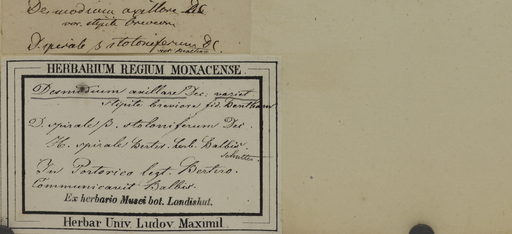 Desmodium axillare DC
var. stipite breviore
D. spirale β stoloniferum DC
HERBARIUM REGIUM MONACENSE
Desmodium axillare Dec: variet
stipite breviore fid. Bentham
D. spirale β. stoloniferum Dec
H. spirale Bertero. herb. Balbis.
In Portorico legt. Bertero.
Communicavit Balbis.
Ex herbario Musei bot. Landishut.
Herbar Univ. Ludov Maximil